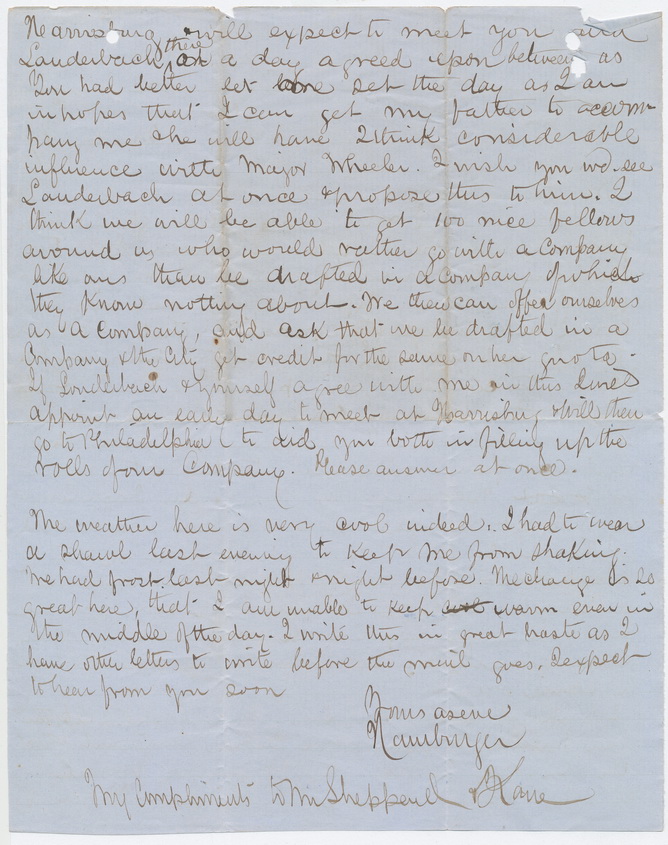 Harrisburg will expect to meet you and
Lauderbach there on a day agreed upon between us
You had better let me set the day as I am
in hopes that I can get my father to accom-
pany me & he will have I think considerable
influence with Major Wheeler. I wish you wd. see
Lauderbach at once & propose this to him. I
think we will be able to get 100 nice fellows
around us who would rather go with a Company
like ours than be drafted in a company of which
they know nothing about. We then can offer ourselves
as a Company, and ask that we be drafted in a
Company & the City get credit for the same on her quota.
If Londerbach & yourself agree with me in this
appoint an early day to meet at Harrisburg & will then
go to Philadelphia to aid you both in filling up the
rolls of our Company. Please answer at once.
The weather here is very cool indeed. I had to wear
a shawl last evening to keep me from shaking.
We had frost last night & night before. The change is so
great here, that I am unable to keep warm even in
the middle of the day. I write this in great haste as I
have other letters to write before the mail goes. I expect
to hear from you soon
Yours as ever
Hamburger
My Compliments to Mr Sheppard & Kane